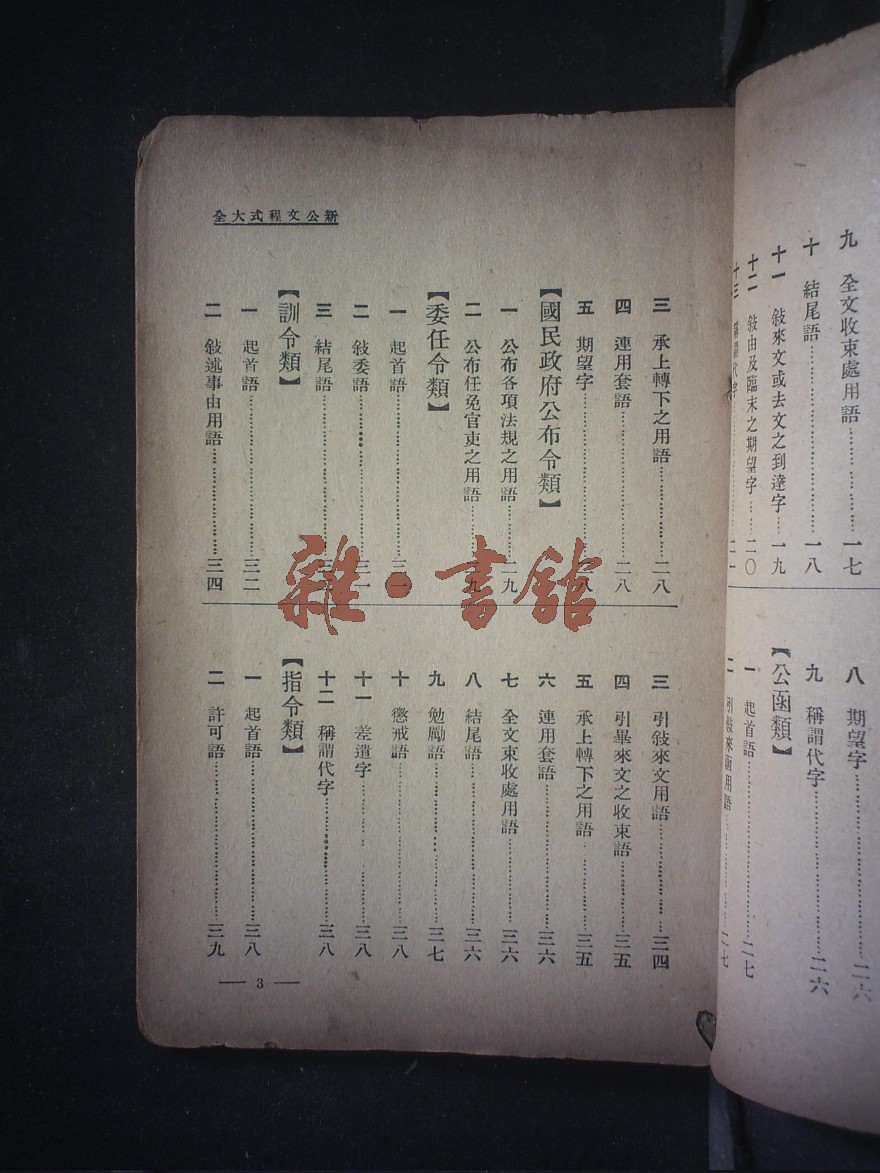 九 全文收束處用語……一七
十 結尾語……一八
十一 敍來文或去文之到達字……一九
十二 敍由及臨末之期望字……二〇
十三 稱謂代字……二一
八 期望字……二六
九 稱謂代字……二六
【公函類】
一 起首語……二七
二 引敍來函用語……二七
新公文程式大全
三 承上轉下之用語……二八
四 連用套語……二八
五 期望字……八
【國民政府公布令類】
一 公布各項法規之用語……二九
二 公布任免官吏之用語……九
【委任令類】
一 起首語……三一
二 敍委語……三一
三 結尾語……三
【訓令類】
一 起首語……三二
二 敍述事由用語……三四
三 引敍來文用語……三四
四 引畢來文之收束語……三五
五 承上轉下之用語……三五
六 連用套語……三六
七 全文束收處用語……三六
八 結尾語……三六
九 勉勵語……三七
十 懲戒語……三八
十一 差遣字……三八
十二 稱謂代字……三八
【指令類】
一 起首語……三八
二 許可語……三九
— 3 —
雜·書館